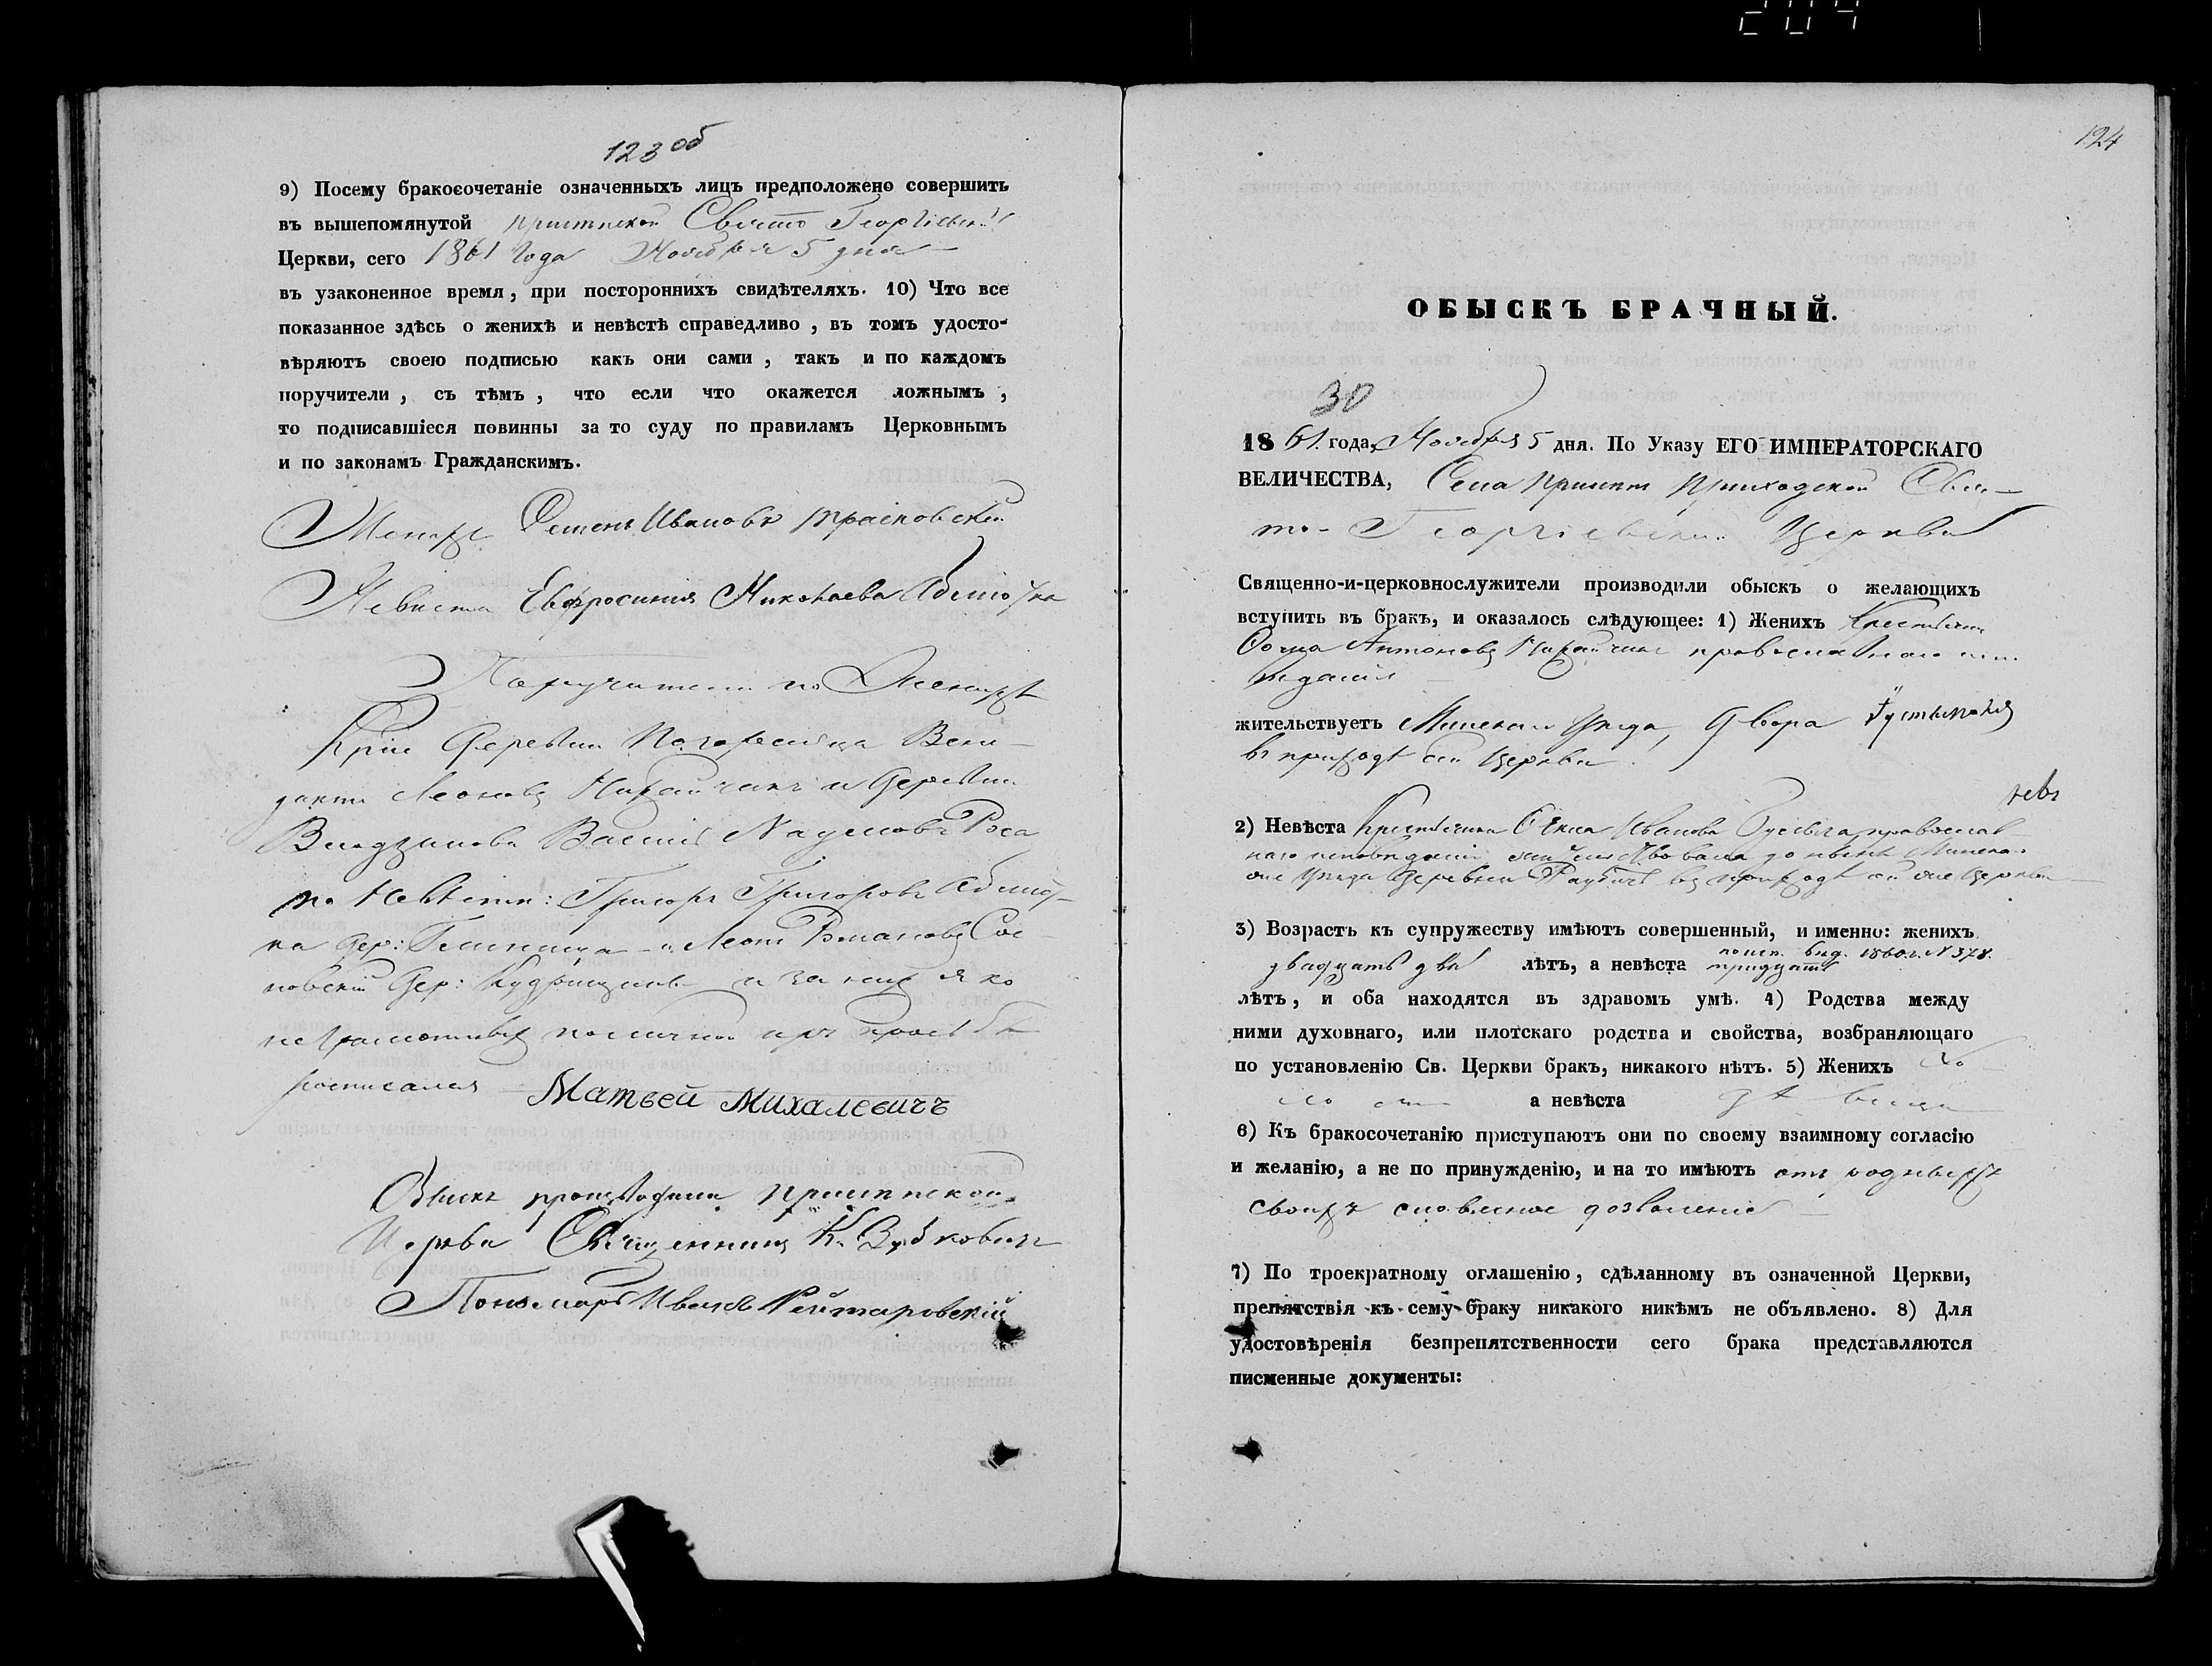 204
123 об
9) Посему бракосочетаніе означенныхъ лицъ предположено совершить
въ вышепомянутой Свято Георгіевск
Церкви, сего 1861 года Ноября 5 дня
въ узаконенное время, при постороннихъ свидѣтеляхъ. 10) Что все
показанное здѣсь о женихѣ и невѣстѣ справедливо, въ томъ удосто-
вѣряютъ своею подписью какъ они сами, такъ и по каждомъ
поручители, съ тѣмъ, что если что окажется ложнымъ,
то подписавшіеся повинны за то суду по правиламъ Церковнымъ
и по законамъ Гражданскимъ.
Женихъ Семенъ Ивановъ
Невѣста Евфросинія Николаева
Поручители по Женихѣ
Деревни
Леоновъ и Деревни
Василій Наумовъ
по Невѣсти: Григоръ Григоровъ
на Дер: и Леонъ Романовъ Сос-
новскій Дер: и за нихъ яко
неграмотныхъ по личной ихъ прозьбѣ
росписался Матвей Михалевичъ
Обыскъ производили
Церкви Священникъ К. Зубковичъ
Пономарь Иванъ Рейтаровскій
124
ОБЫСКЪ БРАЧНЫЙ.
30
1861. года, Ноября 5 дня. По Указу ЕГО ИМПЕРАТОРСКАГО
ВЕЛИЧЕСТВА, Села приходской Свя-
то-Георгіевской Церкви
Священно-и-церковнослужители производили обыскъ о желающихъ
вступить въ бракъ, и оказалось слѣдующее: 1) Женихъ Крестьянинъ
Фома Антоновъ православнаго испо-
вѣданія
жительствуетъ Минскаго Уѣзда, Двора
въ приходѣ сей Церкви
2) Невѣста Крестьянка Ивановa православ-
наго исповѣданія жительствовала до нынѣ Минска-
го Уѣзда деревни въ приходѣ сей же Церкви
3) Возрастъ къ супружеству имѣютъ совершенный, и именно: женихъ
двадцать два лѣтъ, а невѣста тридцать по исп. вѣд. 1860 г. N 378.
лѣтъ, и оба находятся въ здравомъ умѣ. 4) Родства между
ними духовнаго, или плотскаго родства и свойства, возбраняющаго
по установленію Св. Церкви бракъ, никакого нѣтъ. 5) Женихъ хо
лостъ а невѣста дѣвица
6) Къ бракосочетанію приступаютъ они по своему взаимному согласію
и желанію, а не по принужденію, и на то имѣютъ отъ родныхъ
своихъ словесное дозволеніе
7) По троекратному оглашенію, сдѣланному въ означенной Церкви,
препятствія къ сему браку никакого никѣмъ не объявлено. 8) Для
удостовѣренія безпрепятственности сего брака представляются
писменные документы: